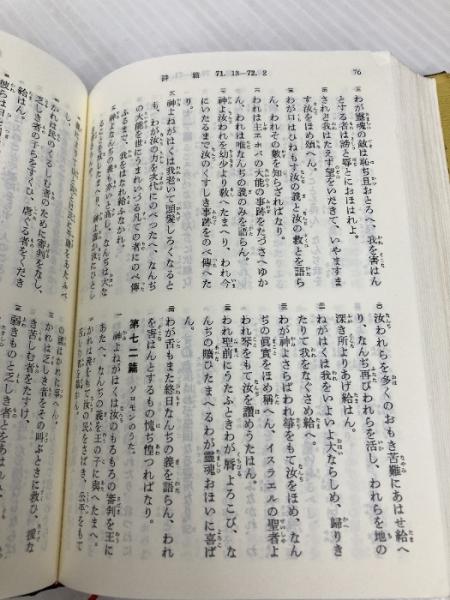 詩篇 71. 13—72. 2
76
わが靈魂の敵は恥ぢ且おとろへ、我を害はん
とする者は謗と辱とにおほはれよ。
されど我はたえず望をいだきて、いやますます
汝をほめ頌へん。
わが口はひねもす汝の義と汝の救とを語ら
ん、われその數を知らざればなり。
われは主ヱホバの大能の事跡をたづさへゆか
ん、われは唯なんぢの義のみを語らん。
神よ汝われを幼少より敎へたまへり、われ今
にいたるまで汝のくすしき事跡をのべ傳へた
り
神よねがはくは我老いて頭髮しろくなると
も、わが汝の力を次代にのべつたへ、なんぢ
の大能を世にうまれいづる凡ての者にのべ傳
ふるまで、我をはなれ給ふなかれ。
神よなんぢの義も亦いと高し、なんぢは大な
汝われらを多くのおもき苦難にあはせ給へ
り、なんぢ再びわれらを活し、われらを地の
深き所よりあげ給はん。
ねがはくは我をいよいよ大ならしめ、歸りき
たりて我をなぐさめ給へ。
わが神よさらばわれ箏をもて汝をほめ、なん
ぢの眞實をほめ稱へん、イスラエルの聖者よ
われ琴をもて汝を讚めうたはん。
われ聖前にうたふときわが脣よろこび、なん
ぢの贖ひたまへるわが靈魂おほいに喜ば
ん
わが舌もまた終日なんぢの義を語らん、われ
を害はんとするもの愧ぢ惶つればなり。
第七二篇 ソロモンのうた
神よねがはくは汝のもろもろの審判を王に
あたへ、なんぢの義を王の子に與へたまへ。
かれは義をもて汝の民をさばき、公平をもて
かれは民のくるしむ者のために審判をなし、
乏しき者の子らをすくひ、虐ぐる者をくだき
かれは乏しき者をその叫ぶときに救ひ、援な
き苦しむ者をたすけ、
弱きものと乏しき者とをあはれみ